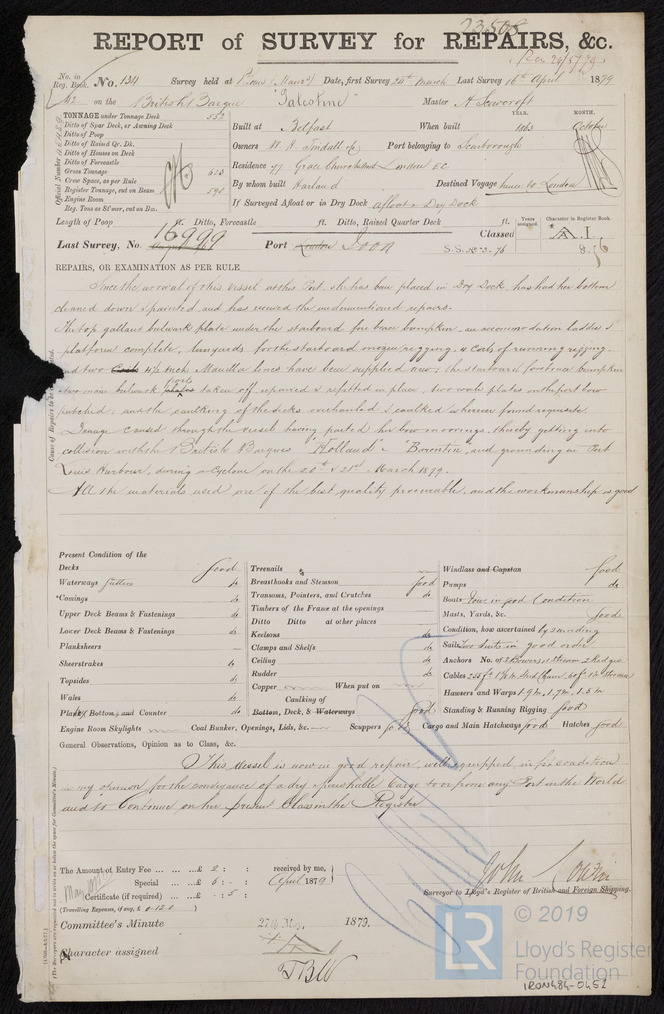 23508
REPORT of SURVEY for REPAIRS, &c.
No. in Reg. Book. No. 134 Survey held at Date, first Survey 24th March Last Survey 16th April 1879
on the British Barque "Palestine" Master A Scowcroft
TONNAGE under Tonnage Deck 552
Ditto of Spar Deck, or Awning Deck
Ditto of Poop
Ditto of Raised Qr. Dk.
Ditto of Houses on Deck
Ditto of Forecastle
Gross Tonnage 623
Crew Space, as per Rule
Register Tonnage, cut on Beam 590
Engine Room
Reg. Tons as St'mer, cut on Bm.
Official Number
YEAR. MONTH.
Built at Belfast When built 1863 October
Owners W. H. Tindall Port belonging to Scarborough
Residence 27 Gracechurch Street London E.C.
By whom built Harland Destined Voyage hence to London
If Surveyed Afloat or in Dry Dock afloat & Dry Dock
Length of Poop ft. Ditto, Forecastle ft. Ditto, Raised Quarter Deck ft.
Years assigned Character in Register Book.
16999
Last Survey, No. Port London Iron Classed A.1.
8.76
REPAIRS, OR EXAMINATION AS PER RULE
Since the arrival of this vessel at this Port, she has been placed in Dry Dock, has had her bottom
cleaned down & painted and has received the undermentioned repairs.
The top gallant bulwark plate under the starboard fore brace bumpkin, an accommodation ladder &
platform complete, lanyards for the starboard mizen rigging, 4 coils of running rigging,
and two 4½ inch Manilla lines have been supplied new; the starboard fore brace bumpkin
two main bulwark plates taken off repaired & refitted in place, two plates on the port bow
patched, and the caulking of the decks overhauled & caulked wherever found requisite.
Damage caused through the vessel having parted her bow moorings, thereby getting into
collision with the British Barques "Holland" & and grounding in Port
Louis Harbour, during a Cyclone on the 20th & 21st March 1879.
All the materials used are of the best quality procurable, and the workmanship is good
Cause of Repairs to be
Present Condition of the
Decks good
Waterways Gutters do
Comings do
Upper Deck Beams & Fastenings do
Lower Deck Beams & Fastenings do
Planksheers —
Sheerstrakes do
Topsides do
Wales do
Plates Bottom, and Counter do
Engine Room Skylights Coal Bunker, Openings, Lids, &c.
Treenails
Breasthooks and Stemson good
Transoms, Pointers, and Crutches do
Timbers of the Frame at the openings
Ditto Ditto at other places
Keelsons do
Clamps and Shelfs do
Ceiling do
Rudder do
Copper When put on
Caulking of
Bottom, Deck, & Waterways good
Scuppers good
Windlass and Capstan good
Pumps do
Boats Four in good Condition
Masts, Yards, &c. good
Condition, how ascertained by sounding
Sails Two Suits in good order
Anchors No. of 3 Bowers 1 Stream 2 Kedges
Cables
Hawsers and Warps
Standing & Running Rigging good
Cargo and Main Hatchways good Hatches good
General Observations, Opinion as to Class, &c.
This Vessel is now in good repair, well equipped, in fit condition
in my opinion for the conveyance of a dry & perishable Cargo to or from any Port in the World
and to Continue on her present Class in the Register
The Amount of Entry Fee ... ... ... £ 2 : : received by me,
Special ... ... £ 6 : - : April 1879
Certificate (if required) ... ... £ - : 5 :
(Travelling Expenses, if any, £ 0.12.0 )
John
Surveyor to Lloyd's Register of British and Foreign Shipping.
Committee's Minute 27th May 1879.
Character assigned
TBW
LR
© 2019
Lloyd's Register
Foundation
IRON484-0452